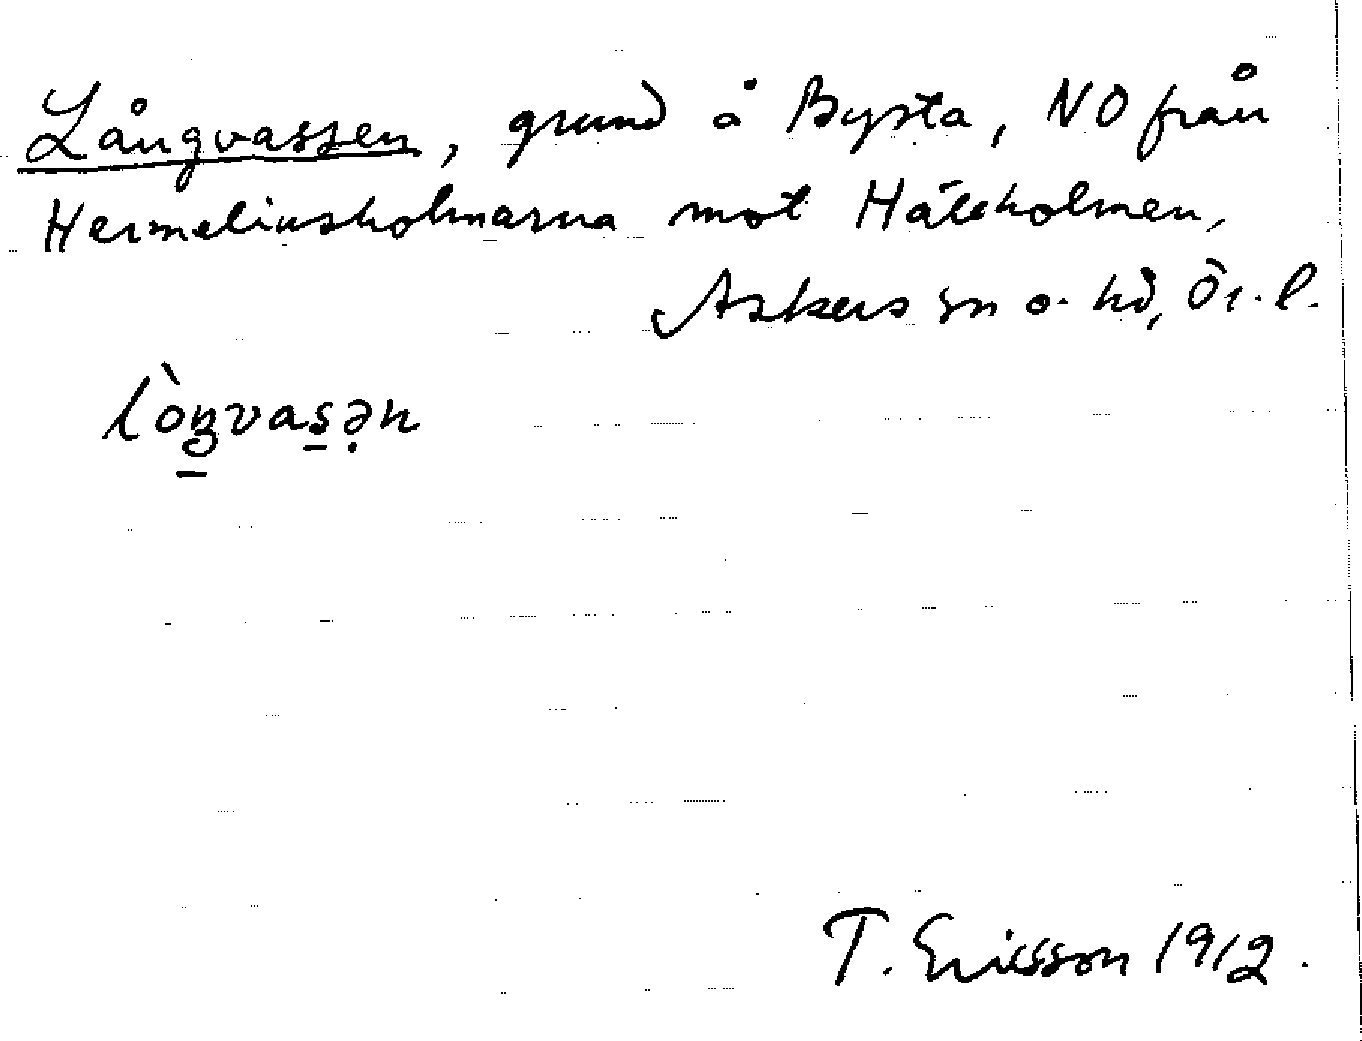 Långvassen, grund å Bysta, NO från
Hermelinsholmarna mot Häteholmen,
Askers sn o. hd, Ör. l.
lò̀ŋvas̠ə̣n
T. Ericsson 1912.